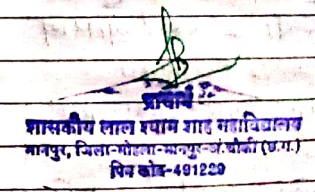 प्राचार्य
शासकीय लाल श्याम शाह महाविद्यालय
मानपुर, जिला-मोहला-मानपुर-अं.चौकी (छ.ग.)
पिन कोड-491229